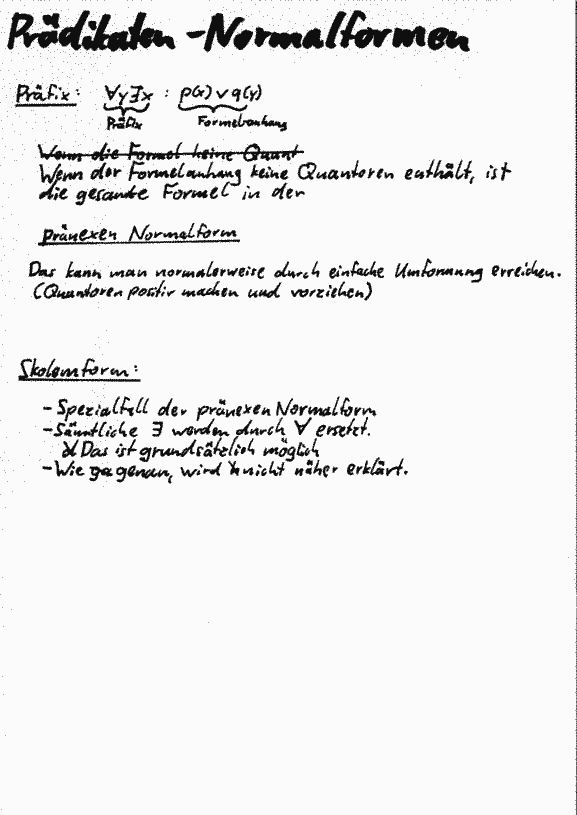 Prädikaten-Normalformen
Präfix: ∀y∃x : p(x) ∨ q(y)
Präfix Formelanhang
Wenn die Formel keine Quant
Wenn der Formelanhang keine Quantoren enthält, ist
die gesamte Formel in der
pränexen Normalform
Das kann man normalerweise durch einfache Umformung erreichen.
(Quantoren positiv machen und vorziehen)
Skolemform:
- Spezialfall der pränexen Normalform
- Sämtliche ∃ werden durch ∀ ersetzt.
Das ist grundsätzlich möglich
- Wie genau, wird nicht näher erklärt.